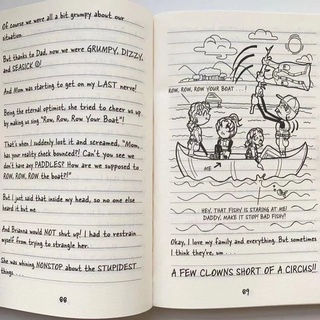 Of course we were all a bit grumpy about our
situation.
But thanks to Dad, now we were GRUMPY, DIZZY,
and SEASICK @!
And Mom was starting to get on my LAST nerve!
Being the eternal optimist, she tried to cheer us up
by making us sing "Row, Row, Row Your Boat"!
That's when I suddenly lost it and screamed, "Mom,
has your reality check bounced?! Can't you see we
don't have any PADDLES? How are we supposed to
ROW, ROW, ROW the boat?!"
But I just said that inside my head, so no one else
heard it but me.
And Brianna would NOT shut up! I had to restrain
myself from trying to strangle her.
She was whining NONSTOP about the STUPIDEST
things. . . .
88
ROW, ROW, ROW YOUR BOAT . . . !
ME
HEY, THAT FISHY IS STARING AT ME!
DADDY, MAKE IT STOP! BAD FISHY!!
Okay, I love my family and everything. But sometimes
I think they're, um . . .
A FEW CLOWNS SHORT OF A CIRCUS!!
89